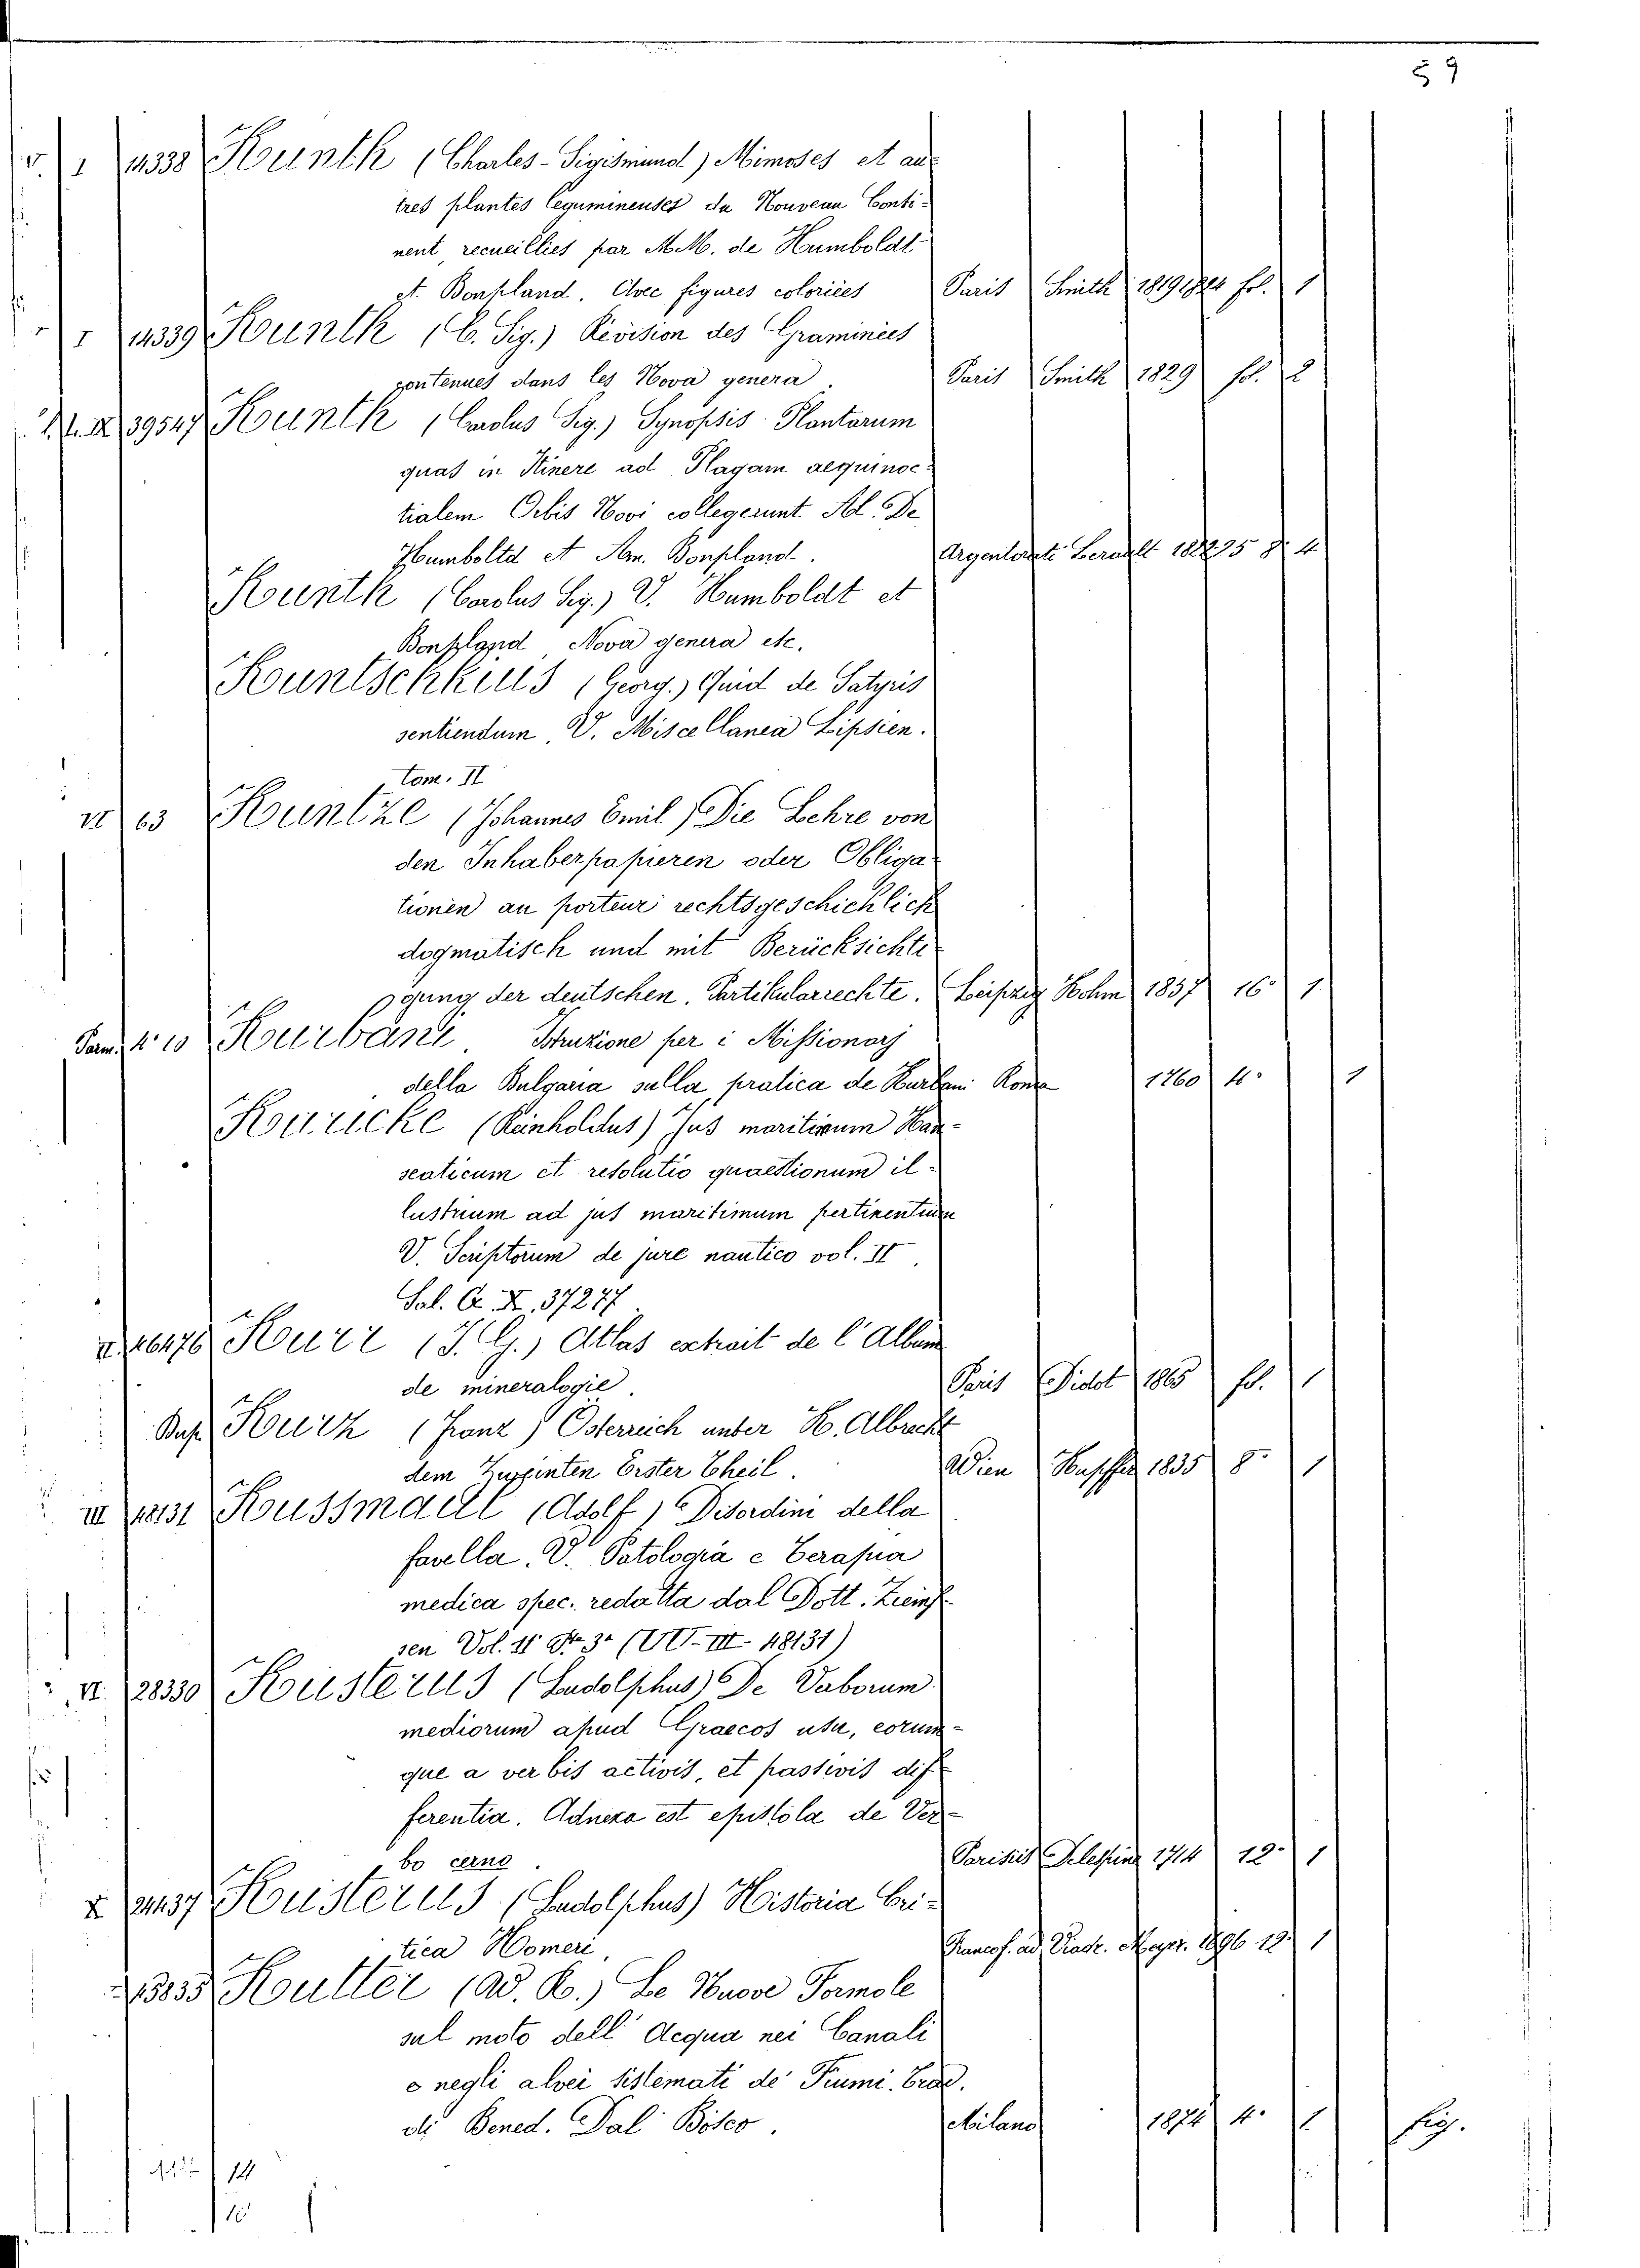 59
I 14338 Kunth (Charles-Sigismund) Mimoses et au-
tres plantes legumineuses du Nouveau Conti-
nent, recueillies par M.M. de Humboldt
et Bonpland. Avec figures coloriées Paris Smith 1819 1824 fol. 1
I 14339 Kunth (C. Sig.) Révision des Graminées
contenues dans les Nova genera. Paris Smith 1829 fol. 2
39547 Kunth (Carolus Sig.) Synopsis Plantarum
quas in Itinere ad Plagam aequinoc-
tialem Orbis Novi collegerunt Al. De
Humboltd et Am. Bonpland. Argentorati Levrault 1822 25 8. 4
Kunth (Carolus Sig.) V. Humboldt et
Bonpland, Nova genera etc.
Kuntschkius (Georg.) Quid de Satyris
sentiendum, V. Miscellanea Lipsien.
tom. II
VI 63 Kuntze (Johannes Emil) Die Lehre von
den Inhaberpapieren oder Obliga-
tionen au porteur rechtsgeschichlich
dogmatisch und mit Berücksichti-
gung der deutschen. Partikularrechte. Leipzig Hohm 1857 16° 1
Parm. 4° 10 Kurbani. Istruzione per i Missionarj
della Bulgaria sulla pratica de Kurbani Roma 1760 4° 1
Kuricke (Reinholdus) Jus maritimum Han-
seaticum et resolutio quaestionum il-
lustrium ad jus maritimum pertinentium
V. Scriptorum de jure nautico vol. II,
Sal. C. X, 37277
46476 Kurr (J. G.) Atlas extrait de l'Album
de mineralogie. Paris Didot 1865 fol. 1
Kurz (Franz) Österreich unter H. Albrecht
dem Erster Theil. Wien 1835 8° 1
III 48131 Kussmaul (Adolf) Disordini della
favella. V. Patologia e Terapia
medica spec. redatta dal Dott. Ziems-
sen Vol. 11 Pte 3a (VII-III-48131)
VI. 28330 Küsterus (Ludolphus) De Vaborum
mediorum apud Graecos usu, eorum-
que a verbis activis, et passivis dif-
ferentia. Adnexa est epistola de Ver-
bo cerno. Parisiis 1714 12° 1
X 21437 Küsterus (Ludolphus) Historia Cri-
tica Homeri, Francof. ad Viadr. Meyer. 1696 12° 1
13835 Kutter (W. R.) Le Nuove Formole
sul moto dell'Acqua nei Canali
e negli alvei sistemati de' Fiumi. Trad.
di Bened. Dal Bosco. Milano 1874 4° 1 fig.
14